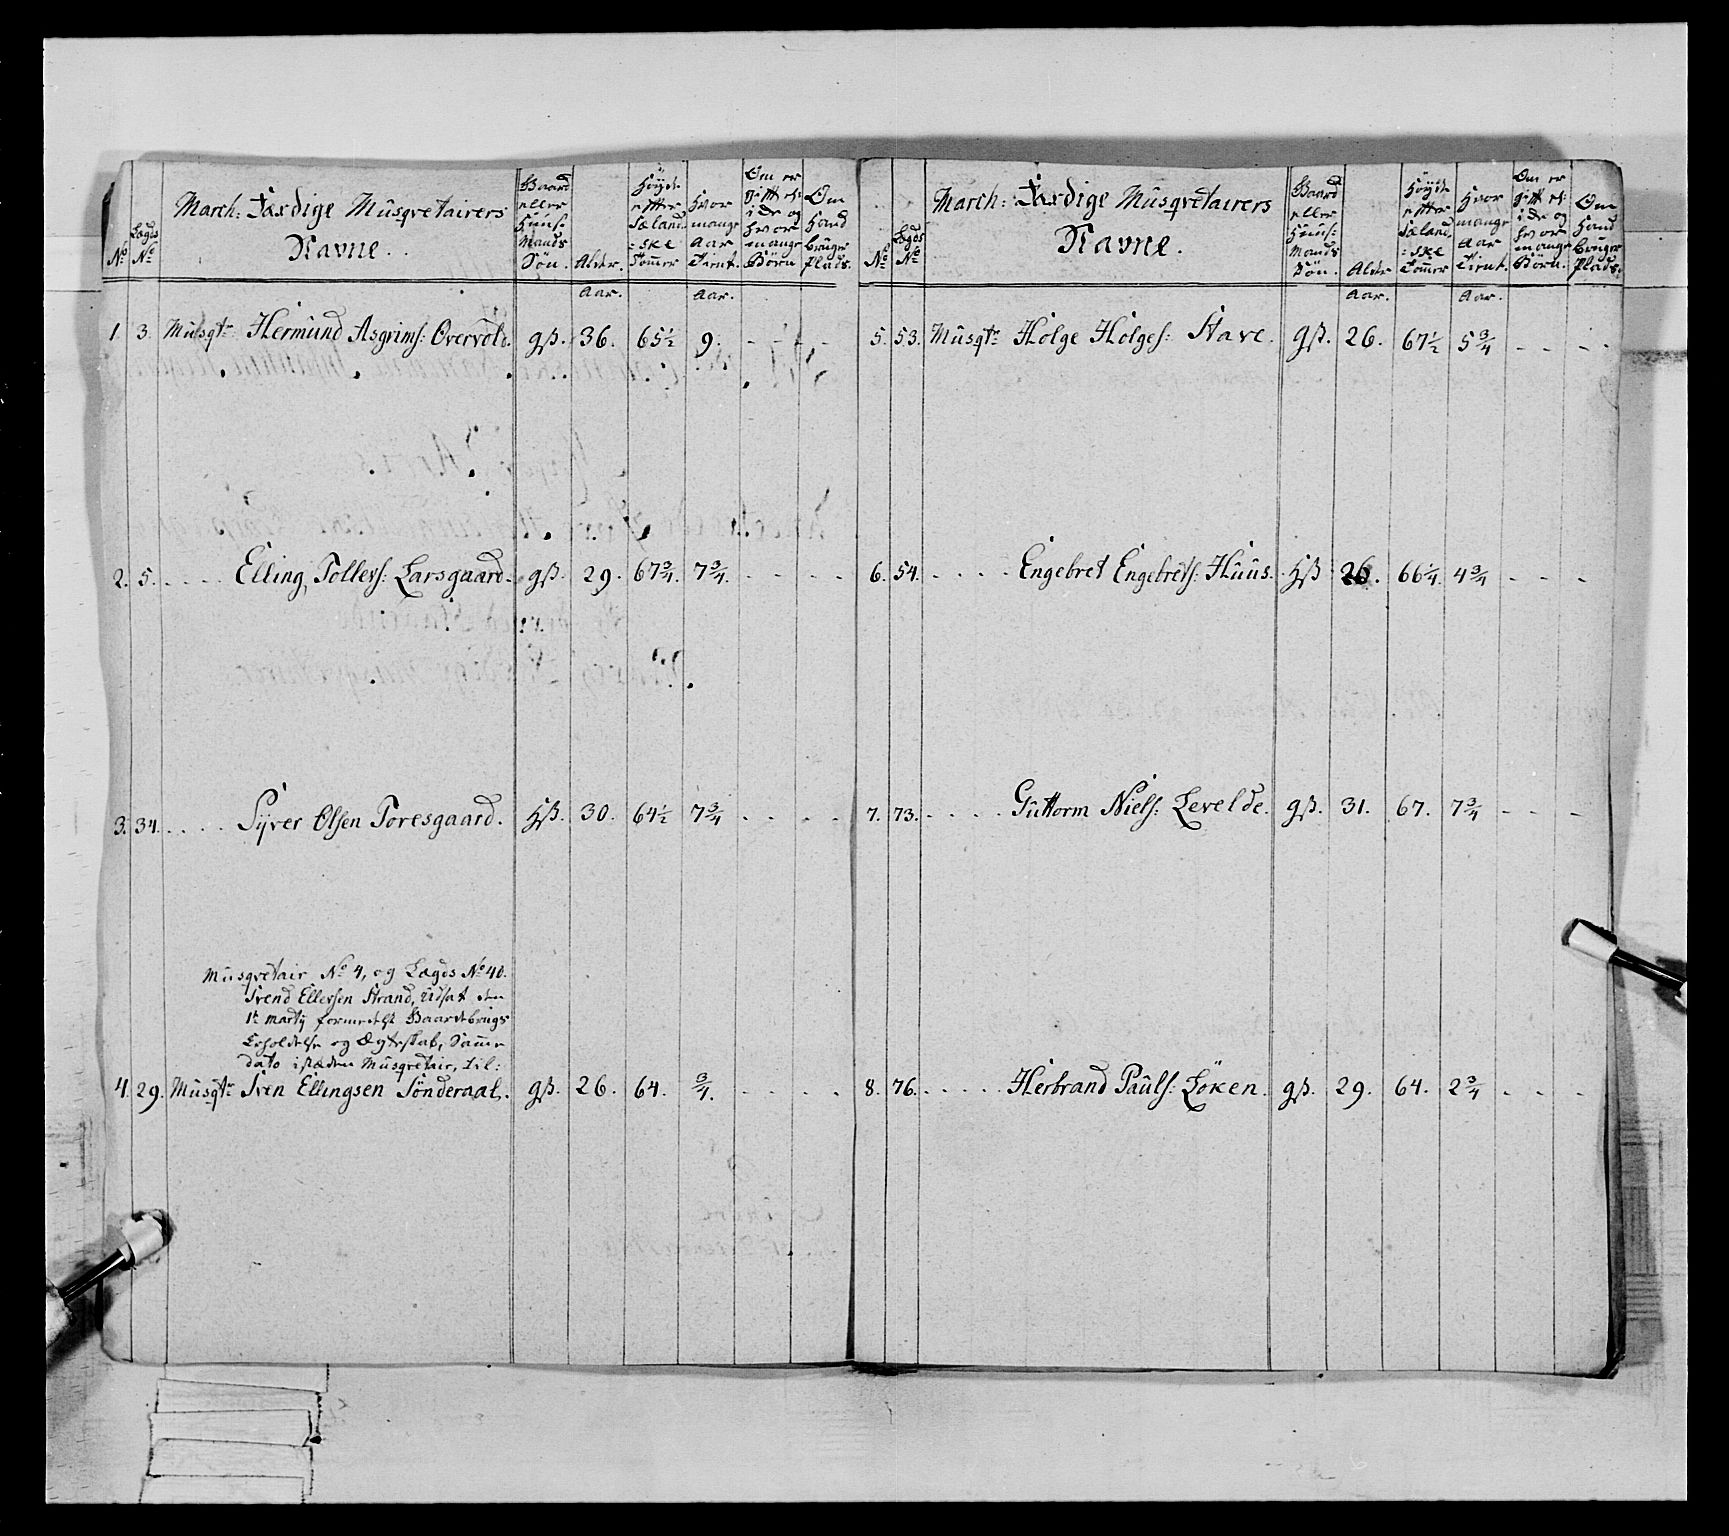 No
Lægds No
March: Færdige Musqvetairers
Navne.
Gaard eller Huus: Mands Søn.
Alder.
Høyde efter Sælands: ske Tommer
Hvor mange Aar Tient.
Om er gift el: i De og hvor mange Børn
Om Hand bruger Plads.
Aar. Aar.
1 3. Musqtr Hermund Asgrims: Overvold. gß. 36. 65½ 9. - - -
2. 5. . . . . Elling Tollevs: Larsgaard. gß. 29. 67¾. 7¾. - - -
3. 34. . . . . Syver Olsen Toresgaard. Hß. 30. 64½ 7¾ - - -
Musqvetair No 4, og Lægds No 40.
Svend Ellefsen Strand, Udsat den
1te Marty formedelst Gaardebrugs
Erholdelse og Ægteskab, Samme
dato isteden Musqvetair, til:
4. 29. Musqtr Sven Ellingsen Sønderaal. gß. 26. 64. ¾. - - -
No
Lægds No
March: Færdige Musqvetairers
Navne.
Gaard eller Huus: Mands Søn.
Alder
Høyde efter Sæland: ske Tommer
Hvor mange Aar Tient.
Om er gift el: i De og hvor mange Børn.
Om Hand bruger Plads.
Aar. Aar.
5. 53. Musqtr Holge Holges: Stave. gß. 26. 67½ 5¾ - - -
6. 54. . . . . Engebret Engebrets: Huus. Hß 26. 66¼. 4¾ - - -
7. 73. . . . . Guttorm Niels: Levelde. gß. 31. 67. 7¾ - - -
8. 76. . . . . Herbrand Pauls: Løken. gß. 29. 64. 2¾ - - -